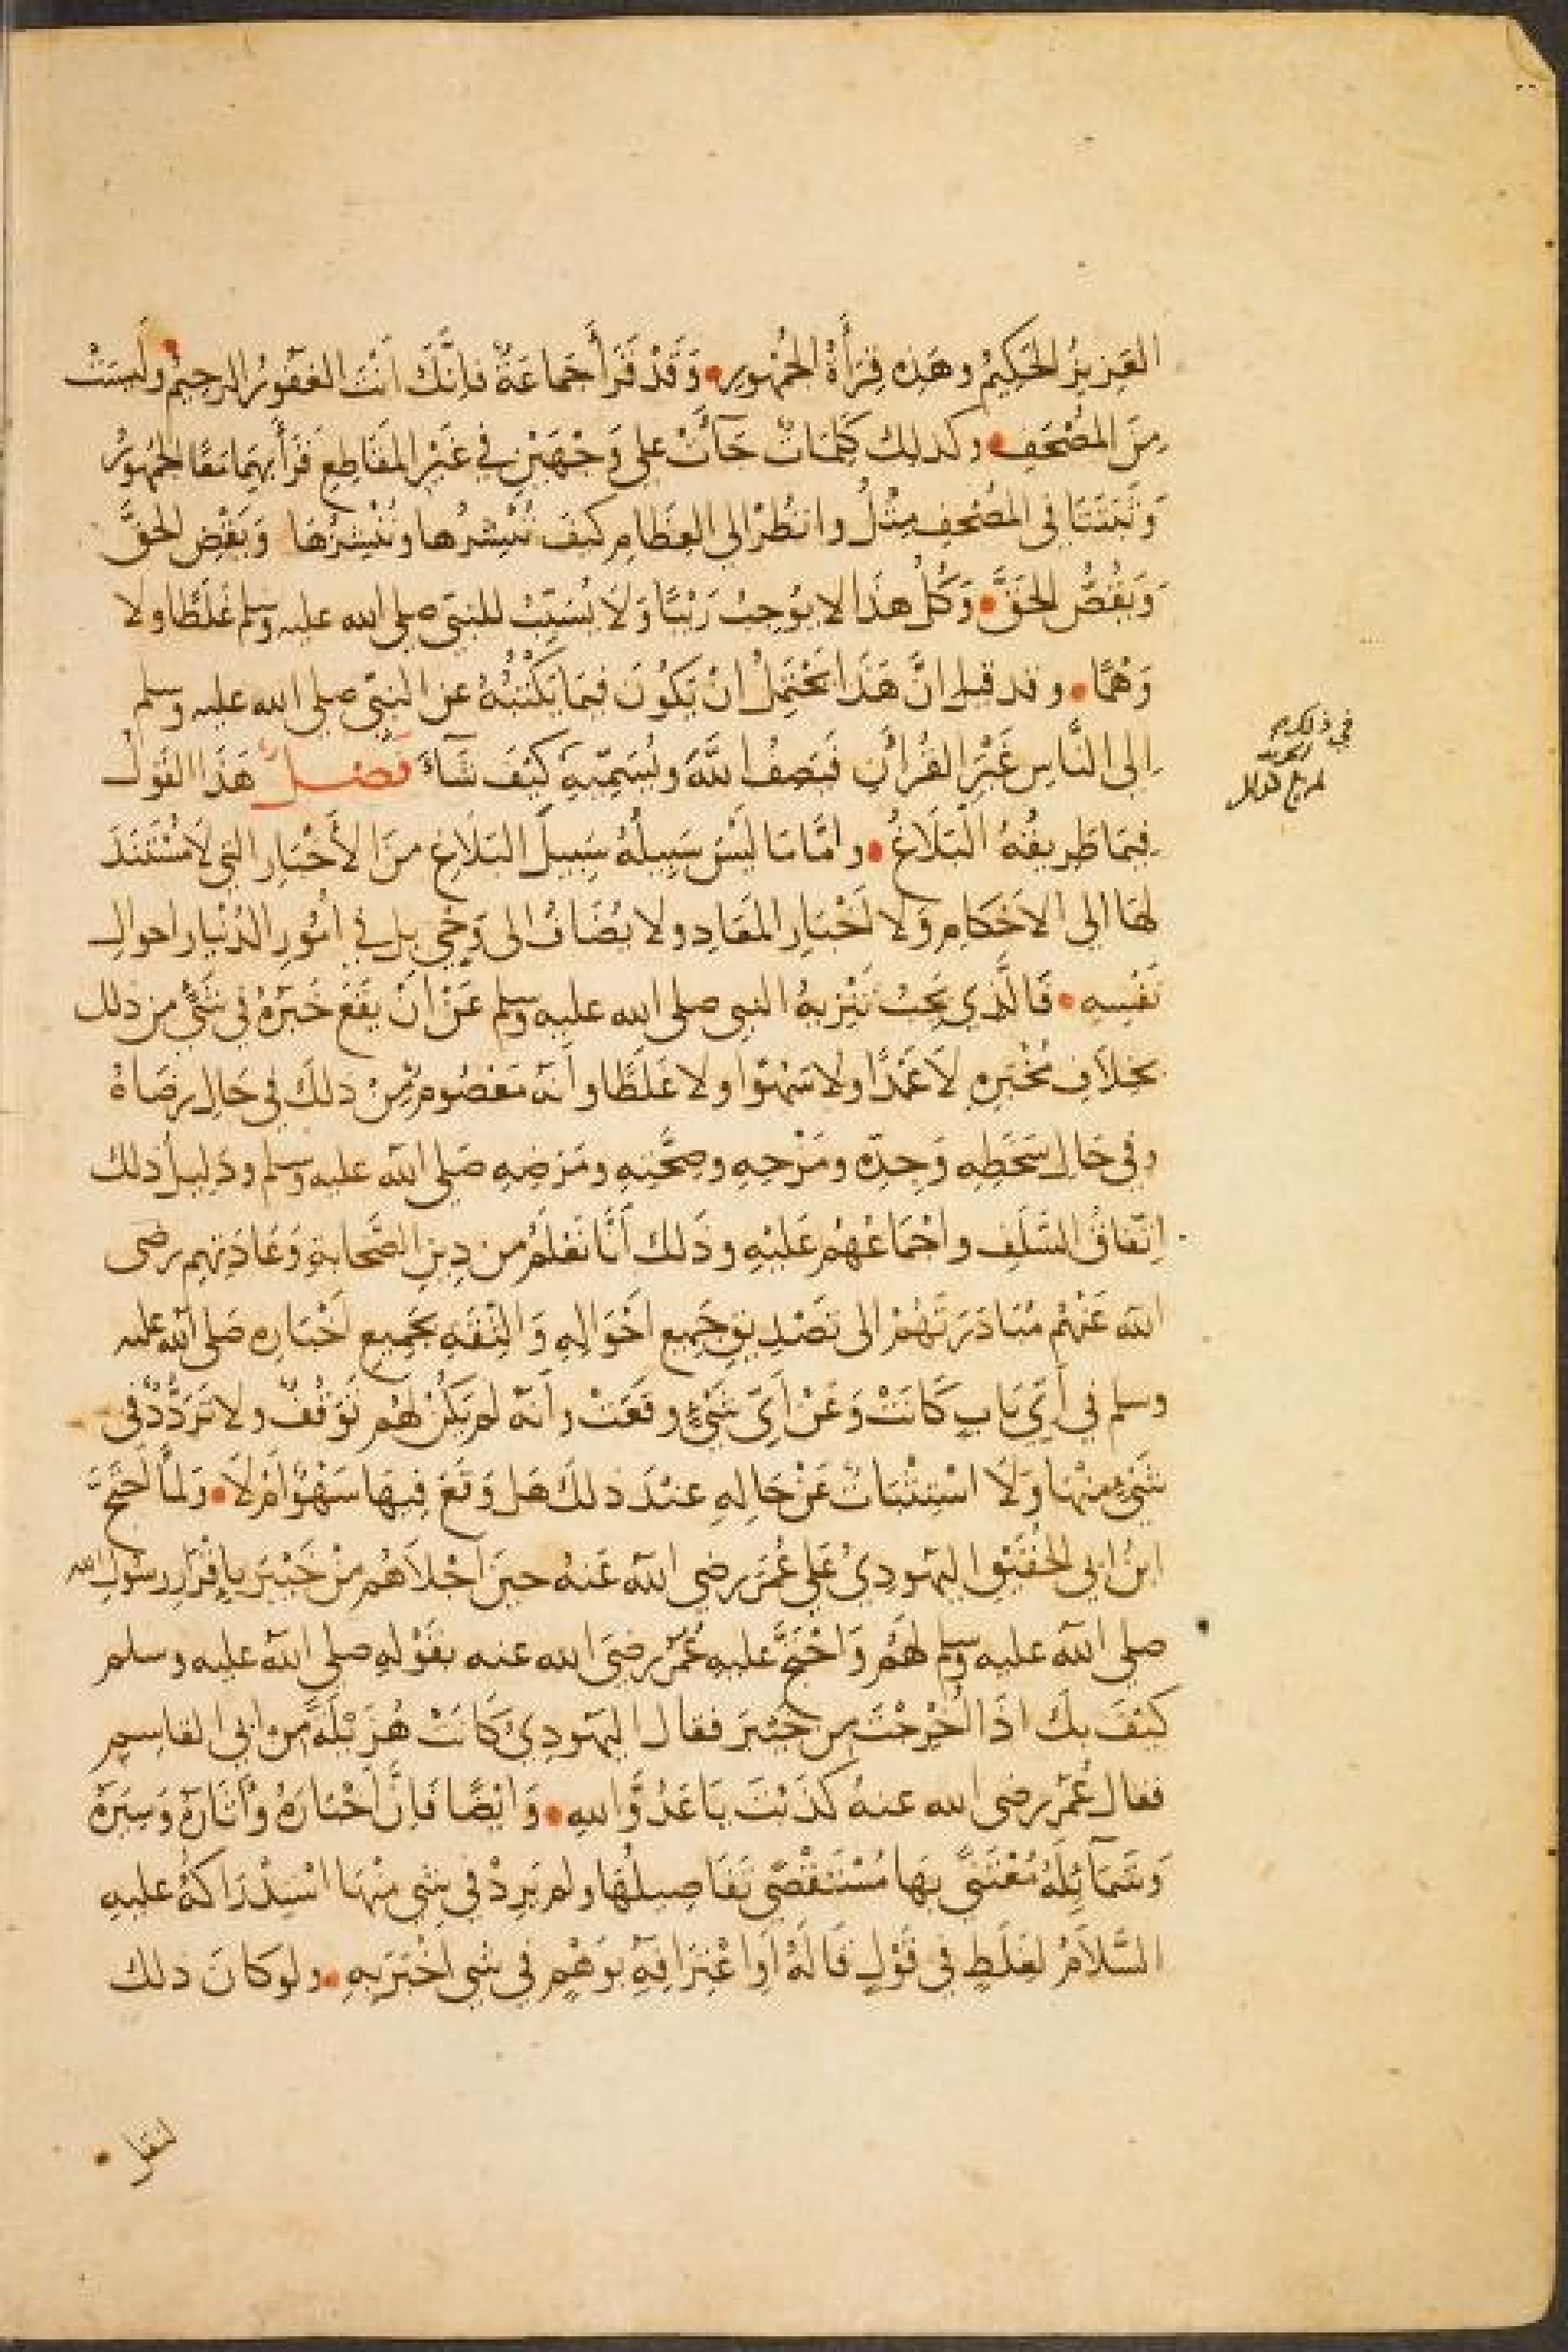 العَزِيزُ الحَكِيمُ وهَذِه قِرَأَةُ الجُمْهورِ • وَقَدْ قَرَأَ جَمَاعَةٌ فَإِنَّكَ أَنْتَ الغَفُورُ الرحيمُ ولَيسَتْ
مِنَ المُصْحَفِ • وكذلِك كَلِمَاتٌ جَآتْ على وَجْهَيْنِ في غَيْرِ المَقَاطِعِ قَرَأَ بِهِمَا مَعًا الجُمْهُورُ
وَثَبَتَتَا فى المُصْحَفِ مِثْلُ وانظُرْ الى العِظَامِ كيفَ نُنْشِرُها ونُنْشِزُهَا وَيَقْضِ الحَقَّ
وَيَقُصُّ الحَقَّ • وَكُلُّ هذَا لا يوُجِبُ رَيْبًا وَلَا يُسَبِّبُ للنبيّ صلى الله عليه وسلم غَلَطًا ولا
وَهْمًا • وقد قيل انَّ هَذَا يَحْتَمِلُ انْ يَكُونَ فيمَا يَكْتُبُهُ عَن النبيّ صلى الله عليه وسلم
إلى النَّاسِ غَيْرَ القُرْاَنِ فَيَصِفُ اللَّهَ ويُسَمِّيهِ كَيْفَ شَآءَ فصل هَذَا القَولُ
فِيمَا طَرِيقُهُ البَلَاغُ • وامَّا مَا لَيْسَ سَبِيلُهُ سَبِيلَ البَلَاغِ مِنَ الأَخْبَارِ التي لَا مُسْتَنَدَ
لهَا الى الاَحْكامِ وَلا اَخْبَارِ المَعَادِ ولا يُضَافُ الى وَحْيٍ بل في اُمُورِ الدُّنْيا واحوالِ
نَفْسِهِ • فَالَّذي يَجبُ تَنْزِيهُ النبى صلى الله عليه وسلم عَنْ انْ يَقَعَ خَبَرُهُ في شَيْءٍ من ذلك
بخِلاَفِ مُخْبَرِهِ لَا عَمْدًا ولا سَهْوًا ولا غَلَطًا وأَنّه مَعْصُومٌ مِنْ ذلكَ في حَالِ رِضَاهُ
وفي حَالِ سَخَطِهِ وَجِدِّه ومَزْحِهِ وصِحَّتِهِ ومَرَضِهِ صَلى الله عليه وسلم ودَلِيلُ ذلك
اتّفَاقُ السَّلَفِ واجْمَاعُهُمْ عَلَيْهِ وذَلك أَنَّا نَعْلَمُ من دِينِ الصَّحَابَةِ وَعَادَتِهِم رضى
الله عَنْهُم مُبَادَرَتَهُمْ الى تَصْدِيقِ جَمِيعِ اَحْوَالِهِ وَالثِّقَةِ بجَمِيعِ اَخْبَارِه صَلى الله عليه
وسلم في أَيِّ بَابٍ كَانَتْ وَعَنْ اَيِّ شَيْءٍ وقَعَتْ وأنّه لم يَكُنْ لهُم تَوَقُفٌ ولا تَرَدُّدٌ في
شَيْءٍ مِنْهَا وَلَا اسْتِثْبَاتٌ عَنْ حَالِهِ عنْدَ ذلكَ هَل وَقَعَ فِيهَا سَهْوٌ اَمْ لَا • وَلمَّا احْتَجَّ
ابنُ ابي الحُقَيْقِ اليَهوديُ عَلى عُمَرَ رضى الله عَنهُ حينَ اَجْلَاَهُم مِنْ خَيْبَرَ بإِقْرَارِ رسُولِ الله
صلى الله عليه وسلم لهُم وَاحْتَجَّ عليهِ عُمَرُ رضىَ الله عنه بقَوْلِهِ صلى الله عليه وسلم
كَيْفَ بِكَ اذَا اُخْرِجْتَ مِن خَيْبَرَ فقال اليَهوديُ كَانَتْ هُزَيْلَةً مِن ابي القاسِمِ
فقال عُمَرُ رضى الله عنهُ كَذَبْتَ يَا عَدُوَّ اللهِ • وَاَيْضًا فَاِنَّ اَخْبَارَهُ وَآثَارَهُ وَسِيَرَهُ
وَشَمَآئِلَهُ مُعْتَنًى بِهَا مُسْتَقْصًى تَفَاصِيلُهَا ولم يَرِدْ في شيٍ مِنْهَا اسْتِدْرَاكهُ عليهِ
السَّلاَمُ لغَلَطٍ في قَوْلٍ قَالَهُ اَوِ اعْتِرَافِهِ بوَهْمٍ في شيٍ اَخْبَرَ بِهِ • ولو كانَ ذلك
لنقل